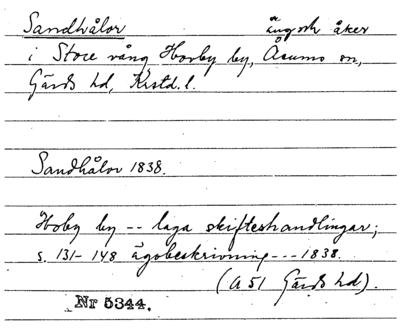 Sandhålor äng och åker
i Store vång Horby by, Åsumo sn,
Gärds hd, Krstd. l.
Sandhålor 1838.
Hoby by -- laga skifteshandlingar;
s. 131-148 ägobeskrivning --- 1838.
(A 51 Gärds hd).
Nr 5344.